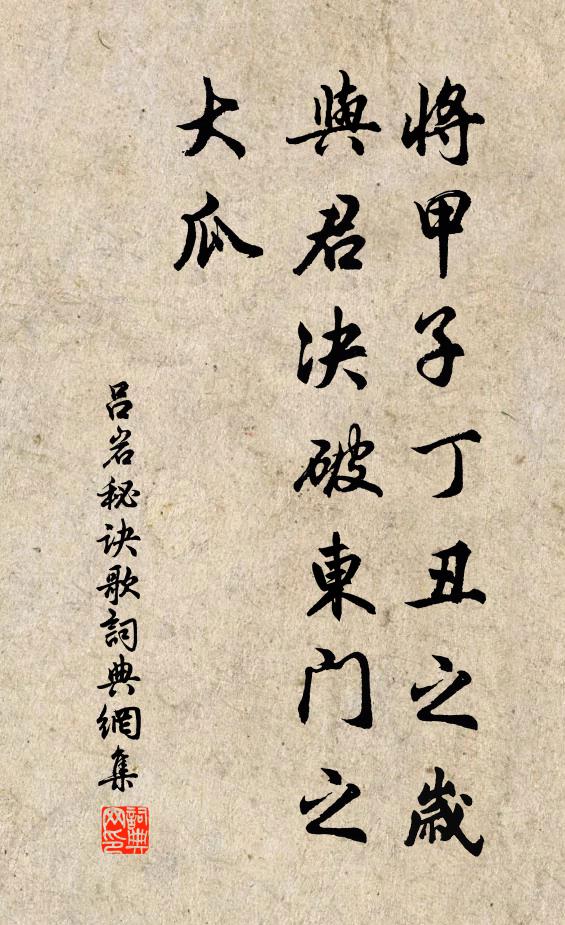 將甲子丁丑之歲
與君決破東门之
大瓜
吕岩秘诀歌詞典網集
詞典网印